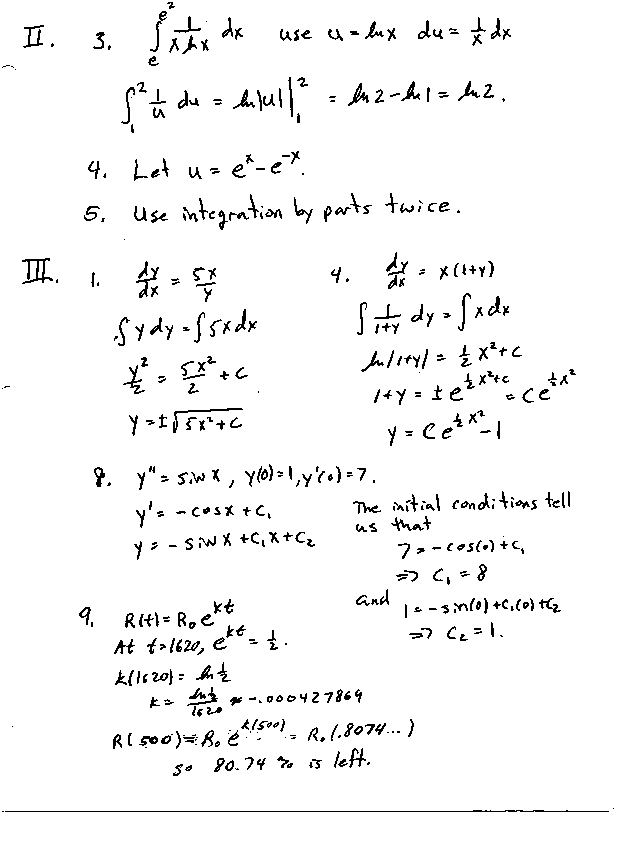 II. 3. ∫_e^{e²} 1/(x ln x) dx use u = ln x du = 1/x dx
∫_1^2 1/u du = ln|u| |_1^2 = ln 2 - ln 1 = ln 2.
4. Let u = e^x - e^{-x}.
5. Use integration by parts twice.
III. 1. dy/dx = 5x/y
∫ y dy = ∫ 5x dx
y²/2 = 5x²/2 + C
y = ±√(5x² + C)
4. dy/dx = x(1+y)
∫ 1/(1+y) dy = ∫ x dx
ln|1+y| = ½ x² + C
1+y = ± e^{½x²+C} = C e^{½x²}
y = C e^{½x²} - 1
8. y'' = sin x, y(0)=1, y'(0)=7.
y' = -cos x + C₁
y = -sin x + C₁x + C₂
The initial conditions tell
us that
7 = -cos(0) + C₁
⇒ C₁ = 8
and 1 = -sin(0) + C₁(0) + C₂
⇒ C₂ = 1.
9. R(t) = R₀ e^{kt}
At t=1620, e^{kt} = ½.
k(1620) = ln ½
k = ln ½ / 1620 ≈ -.000427869
R(500) = R₀ e^{k(500)} = R₀(.8074...)
so 80.74 % is left.